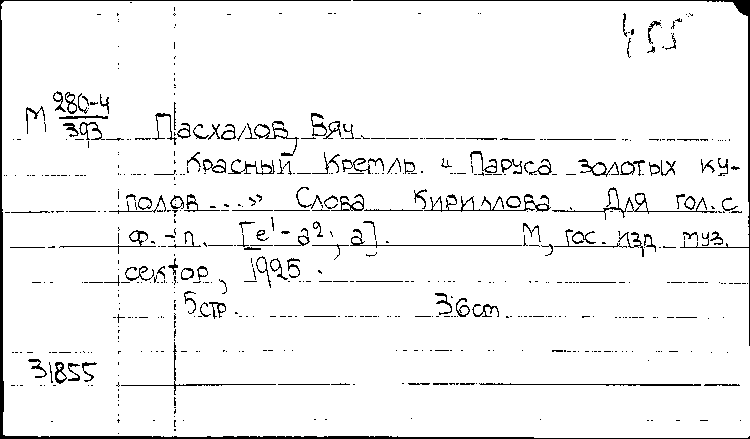 455
М 280-4
393
Пасхалов, Вяч.
Красный Кремль. "Паруса золотых ку-
полов...» Слова Кириллова. Для гол. с
ф.-п. [e¹-a²; a]. М, гос. изд. муз.
сектор, 1925.
5 стр. 36 cm.
31855